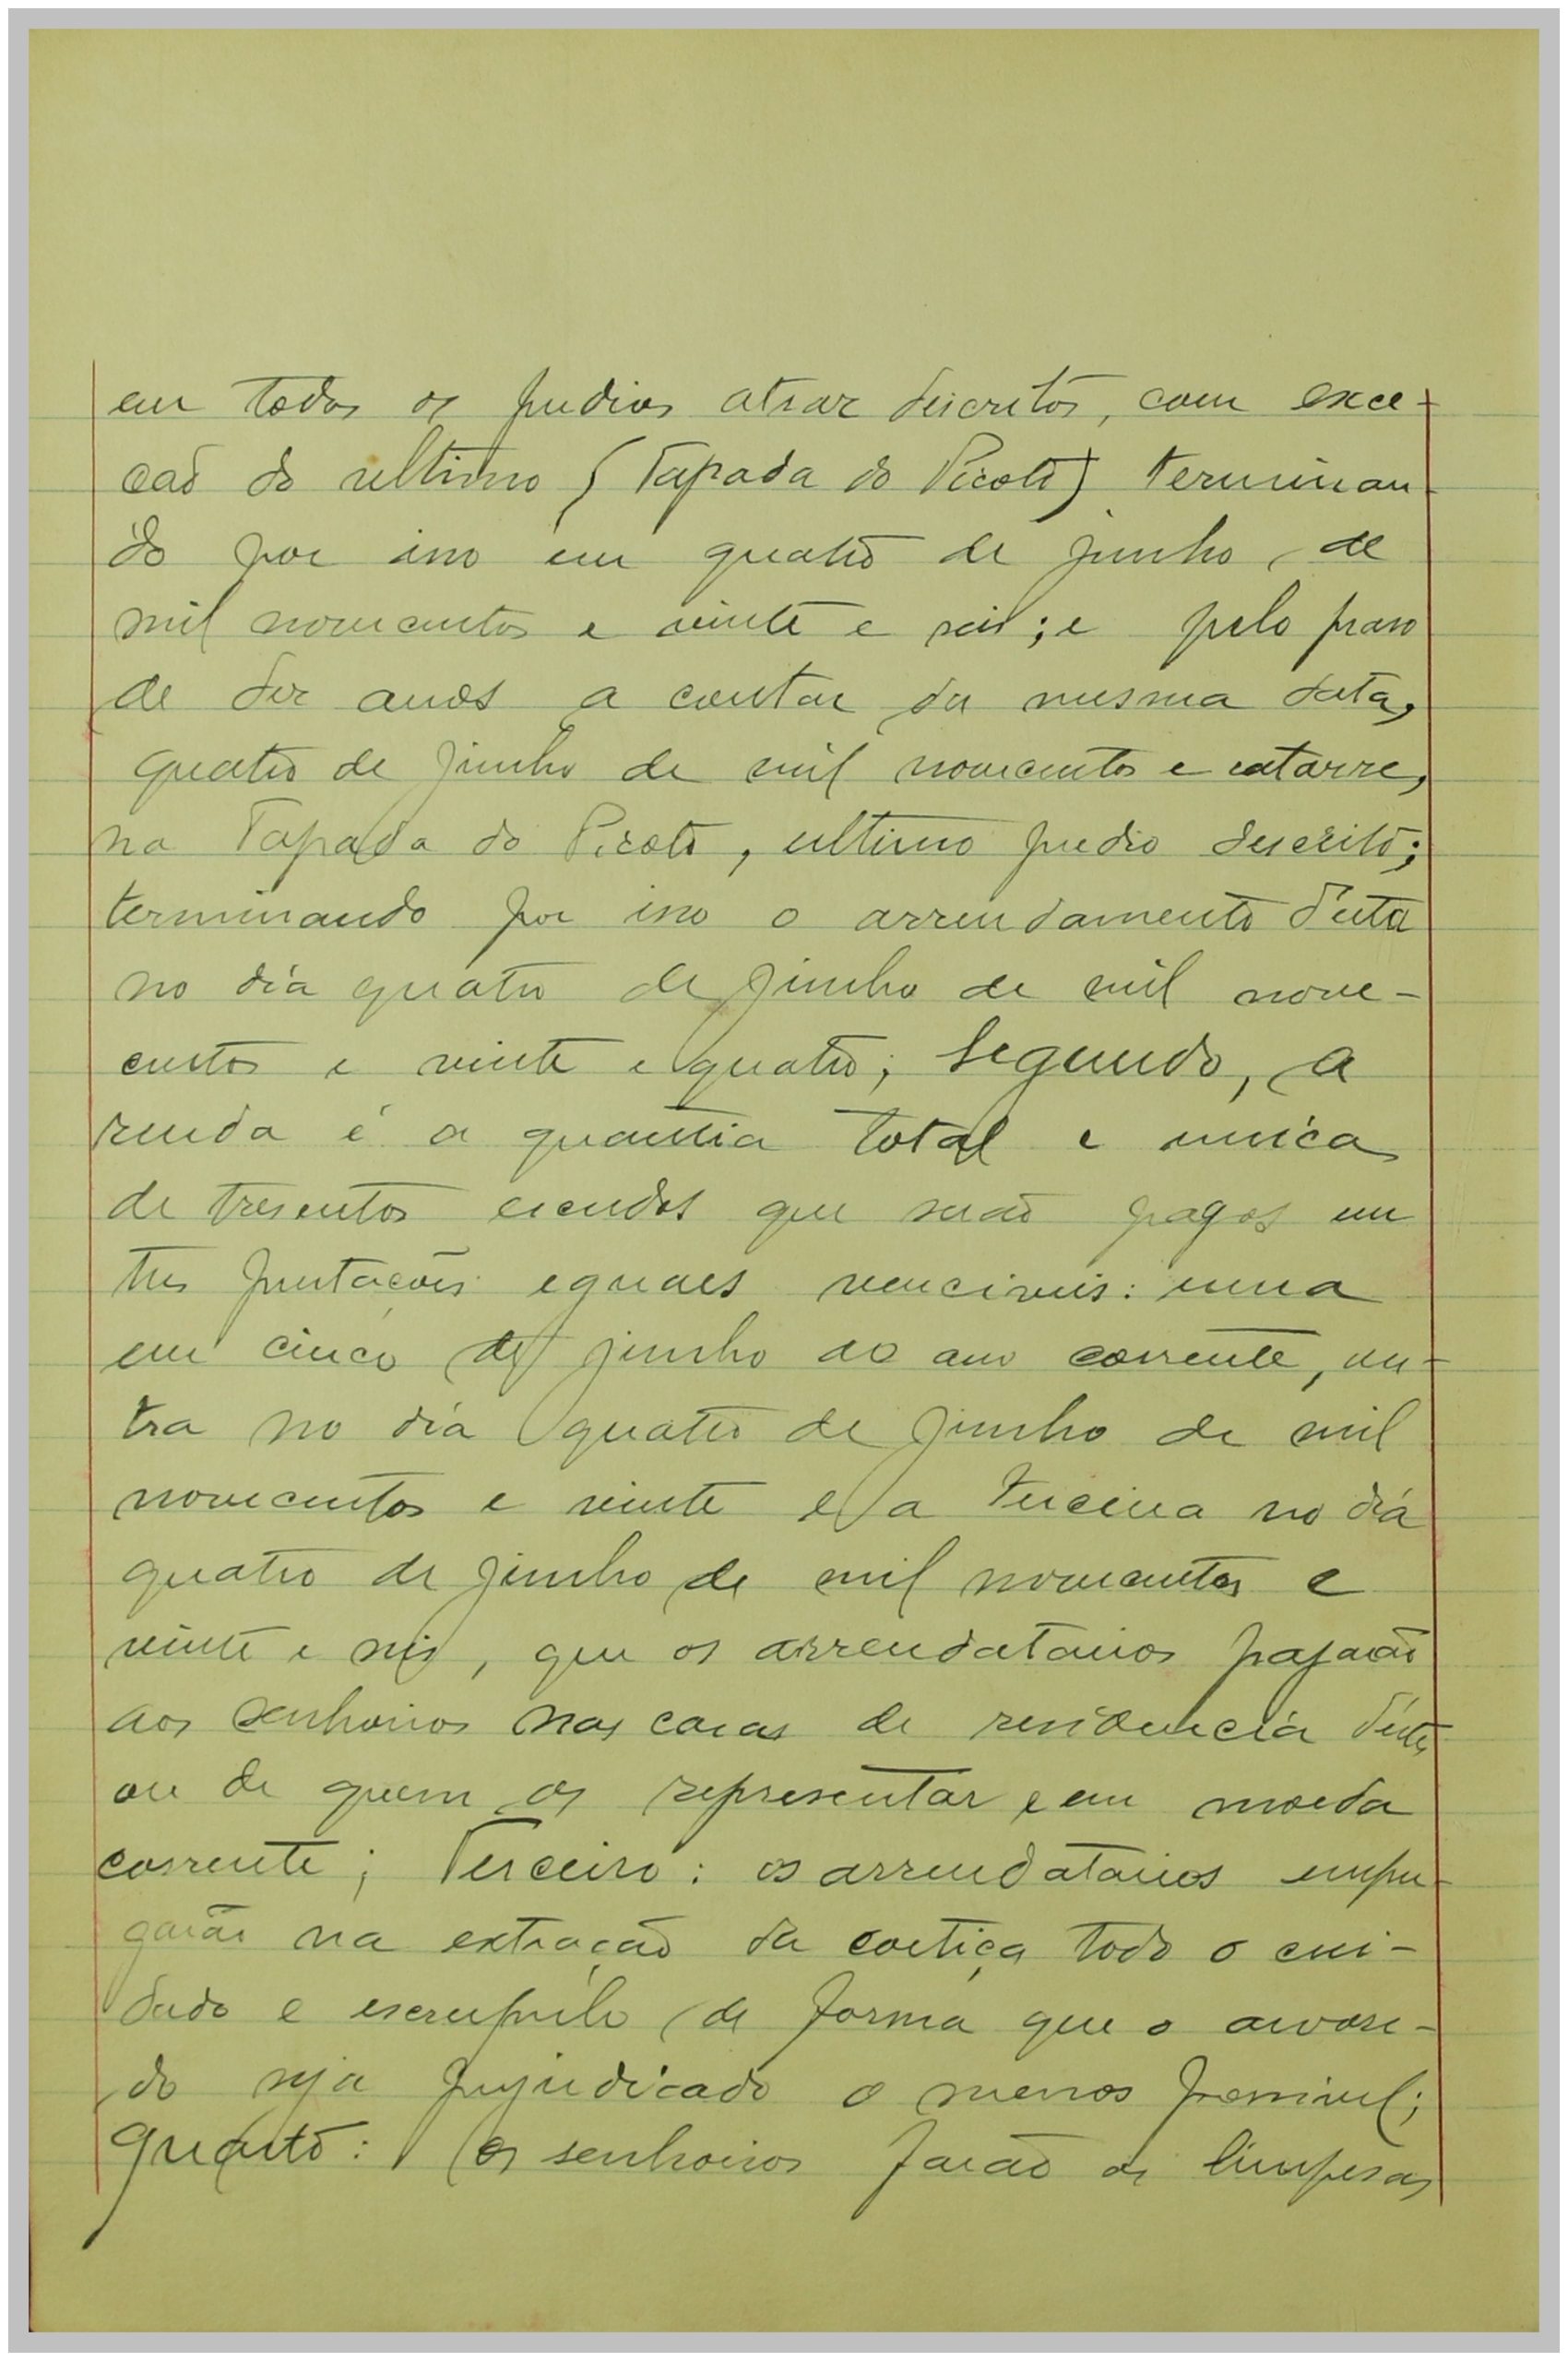 em todos os predios atraz descritos, com exce-
ção do ultimo (Tapada do Picoto) terminan-
do por isso em quatro de junho, de
mil novecentos e vinte e seis; e pelo praso
de dez anos a contar da mesma data,
quatro de junho de mil novecentos e catorze,
na Tapada do Picoto, ultimo predio descrito;
terminando por isso o arrendamento d'esta
no dia quatro de junho de mil nove-
centos e vinte e quatro; Segundo, a
renda é a quantia total e unica
de tresentos escudos que serão pagos em
tres prestações eguaes venciveis: uma
em cinco de junho do ano corrente, ou-
tra no dia quatro de junho de mil
novecentos e vinte e a terceira no dia
quatro de junho de mil novecentos e
vinte e seis, que os arrendatarios pagarão
aos senhorios nas casas de residencia d'estes
ou de quem os representar e em moeda
corrente; Terceiro: os arrendatarios empre-
garão na extração da cortiça todo o cui-
dado e escrupulo de forma que o arvore-
do seja prejudicado o menos possivel;
Quarto: Os senhorios farão as limpesas